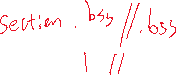 section .bss // .bss
| //